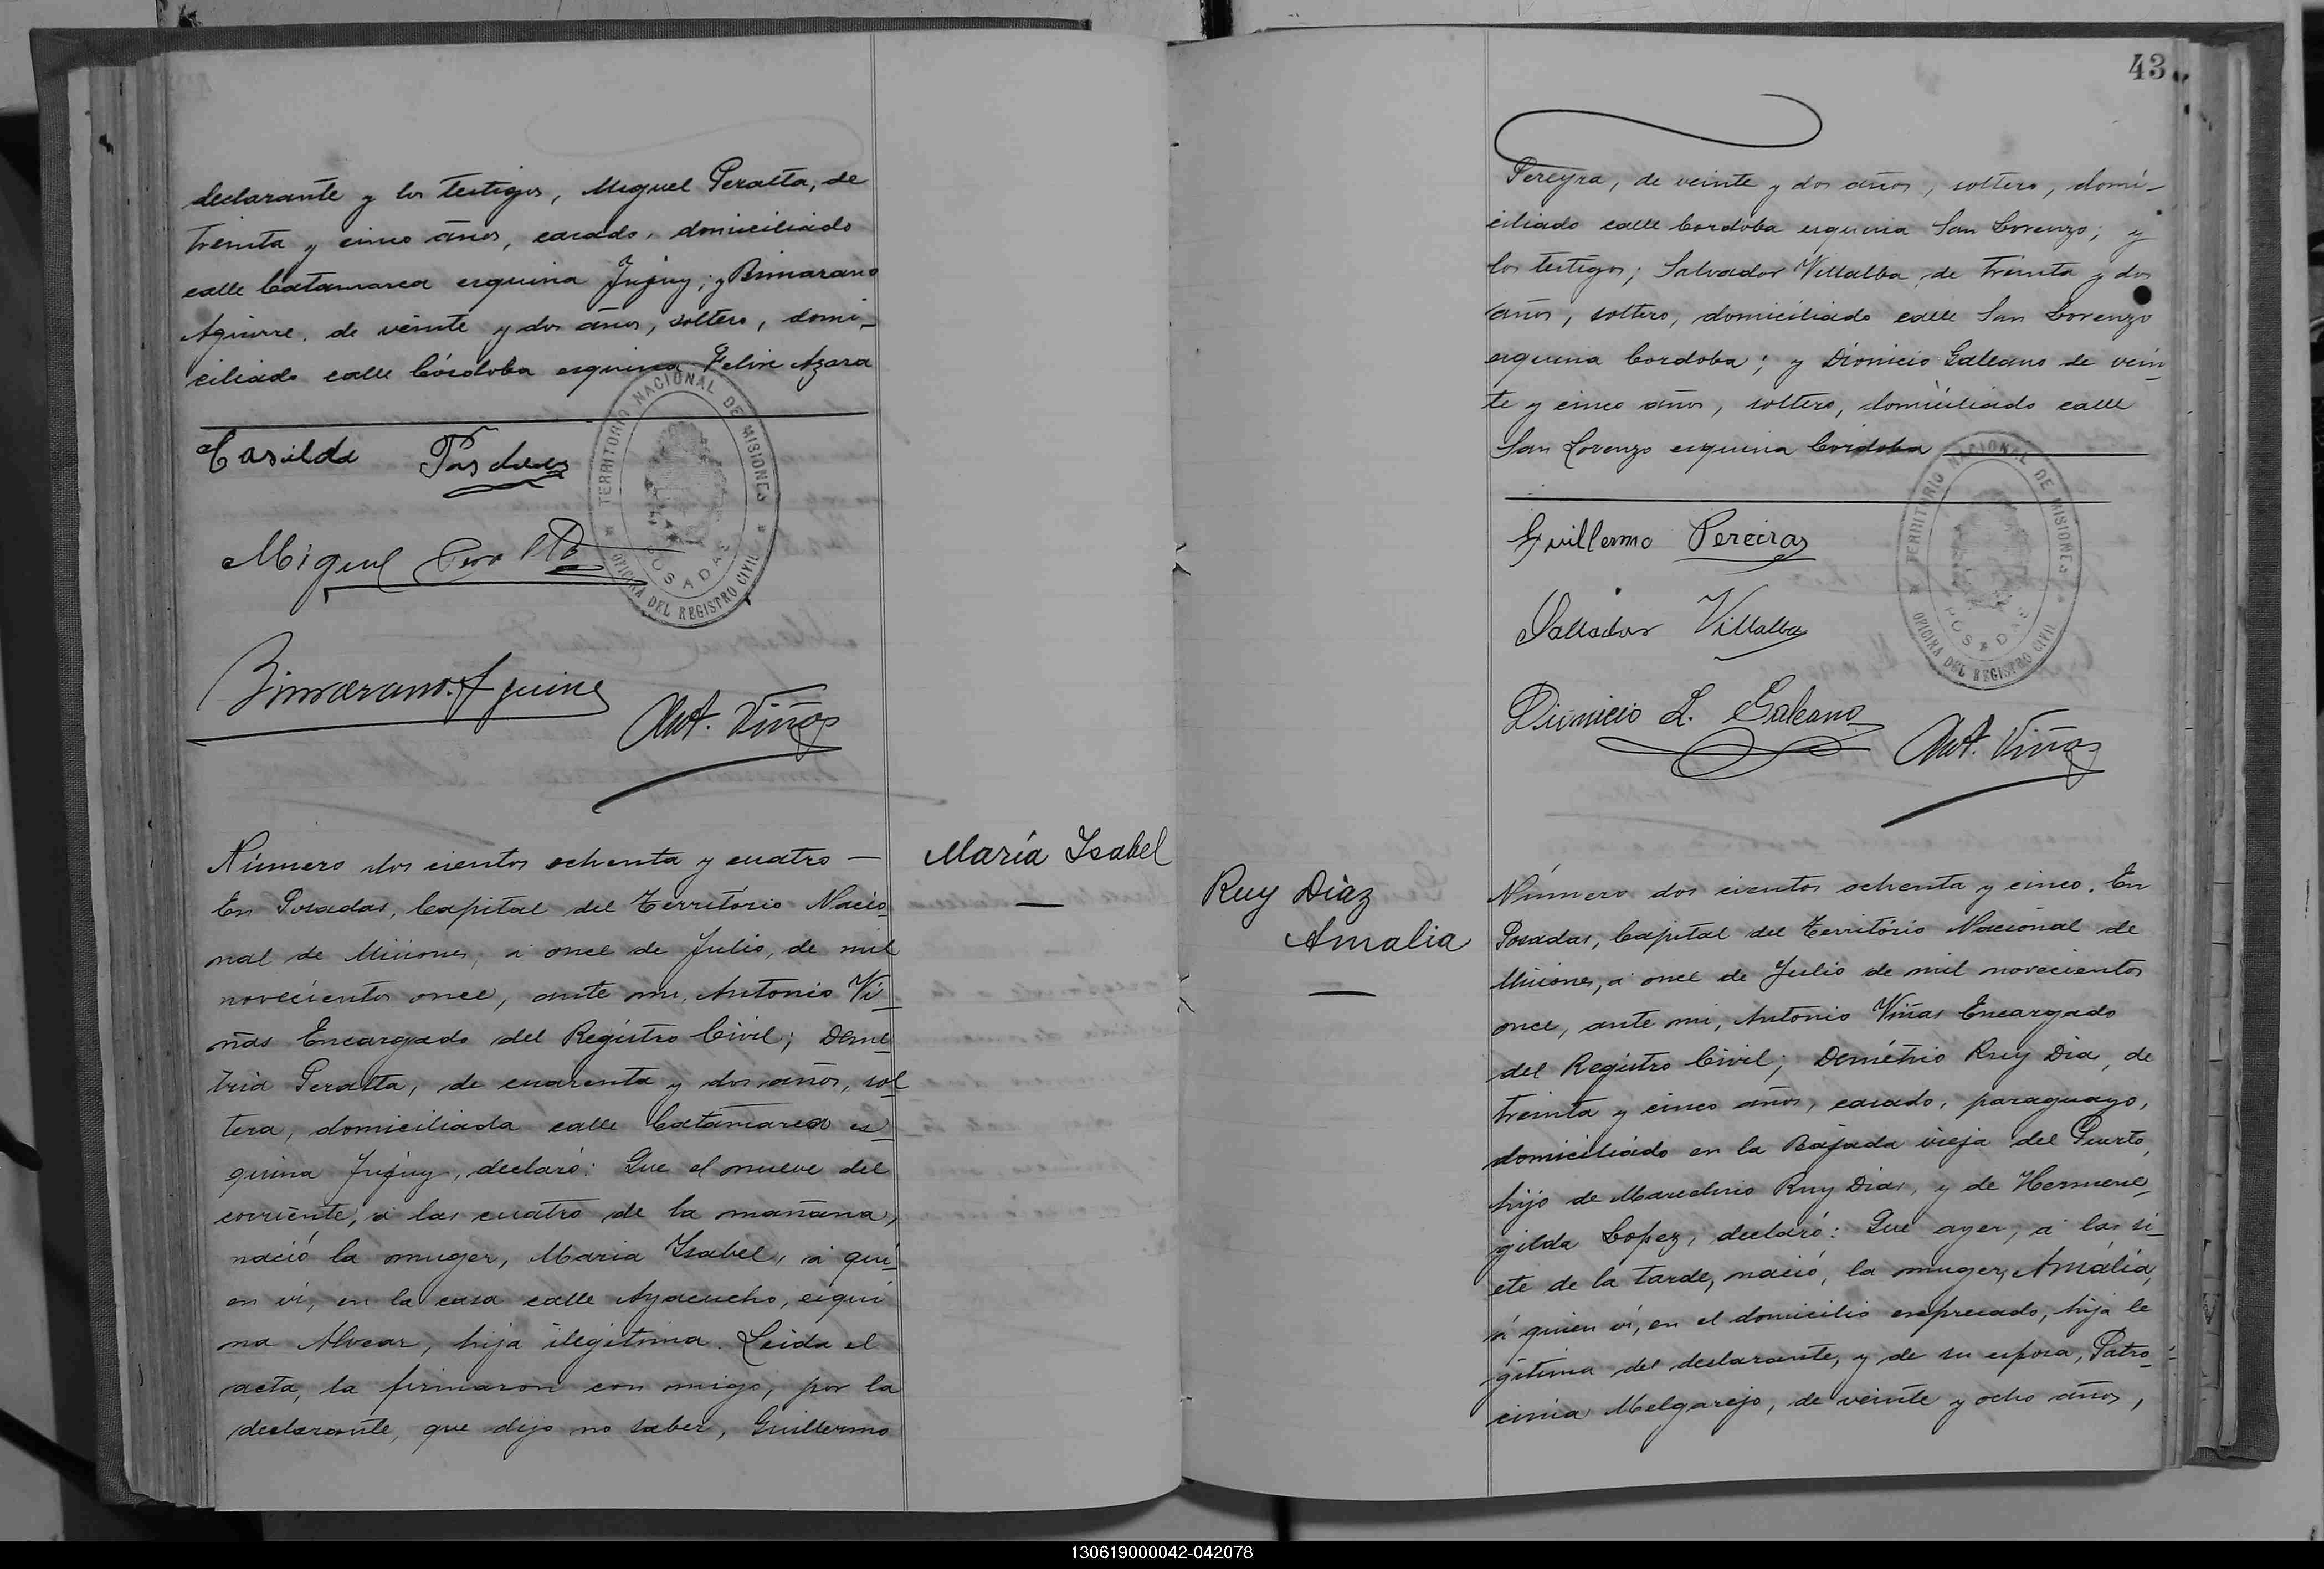 declarante y los testigos, Miguel Peralta, de
treinta y cinco años, casado, domiciliado
calle Catamarca esquina Jujuy; y Bimarano
Aguirre, de veinte y dos años, soltero, domi-
ciliado calle Córdoba esquina Felix Azara
TERRITORIO NACIONAL DE MISIONES
POSADAS
OFICINA DEL REGISTRO CIVIL
Casilda
Miguel
Bimarano Aguirre
Ant. Viñas
Número dos cientos ochenta y cuatro —
En Posadas, Capital del Território Nacio-
nal de Misiones, á once de Julio, de mil
novecientos once, ante mi, Antonio Vi-
ñas Encargado del Registro Civil; Deme-
tria Peralta, de cuarenta y dos años, sol-
tera, domiciliada calle Catamarca es-
quina Jujuy, declaró: Que el nueve del
corriente, á las cuatro de la mañana,
nació la muger, Maria Isabel, á qui-
en vi, en la casa calle Ayacucho, esqui
na Alvear, hija ilegitima. Leida el
acta, la firmaron con migo, por la
declarante, que dijo no saber, Guillermo
María Isabel
43
Pereyra, de veinte y dos años, soltero, domi-
ciliado calle Cordoba esquina San Lorenzo; y
los testigos; Salvador Villalba, de treinta y dos
años, soltero, domiciliado calle San Lorenzo
esquina Cordoba; y Dionicio Galeano de vein-
te y cinco años, soltero, domiciliado calle
San Lorenzo esquina Córdoba
TERRITORIO NACIONAL DE MISIONES
POSADAS
OFICINA DEL REGISTRO CIVIL
Guillermo Pereira
Salvador Villalba
Dionicio L. Galeano
Ant. Viñas
Ruy Diaz
Amalia
Número dos cientos ochenta y cinco. En
Posadas, Capital del Território Nacional de
Misiones, á once de Julio de mil novecientos
once, ante mi, Antonio Viñas Encargado
del Registro Civil; Demétrio Ruy Dia, de
treinta y cinco años, casado, paraguayo,
domiciliado en la Bajada vieja del Puerto,
hijo de Marcelino Ruy Dias, y de Hermene-
gilda Lopez, declaró: Que ayer, á las si-
ete de la tarde, nació, la muger, Amália,
á quien vi, en el domicilio espresado, hija le
gitima del declarante, y de su esposa, Patro-
cinia Melgarejo, de veinte y ocho años,
130619000042-042078